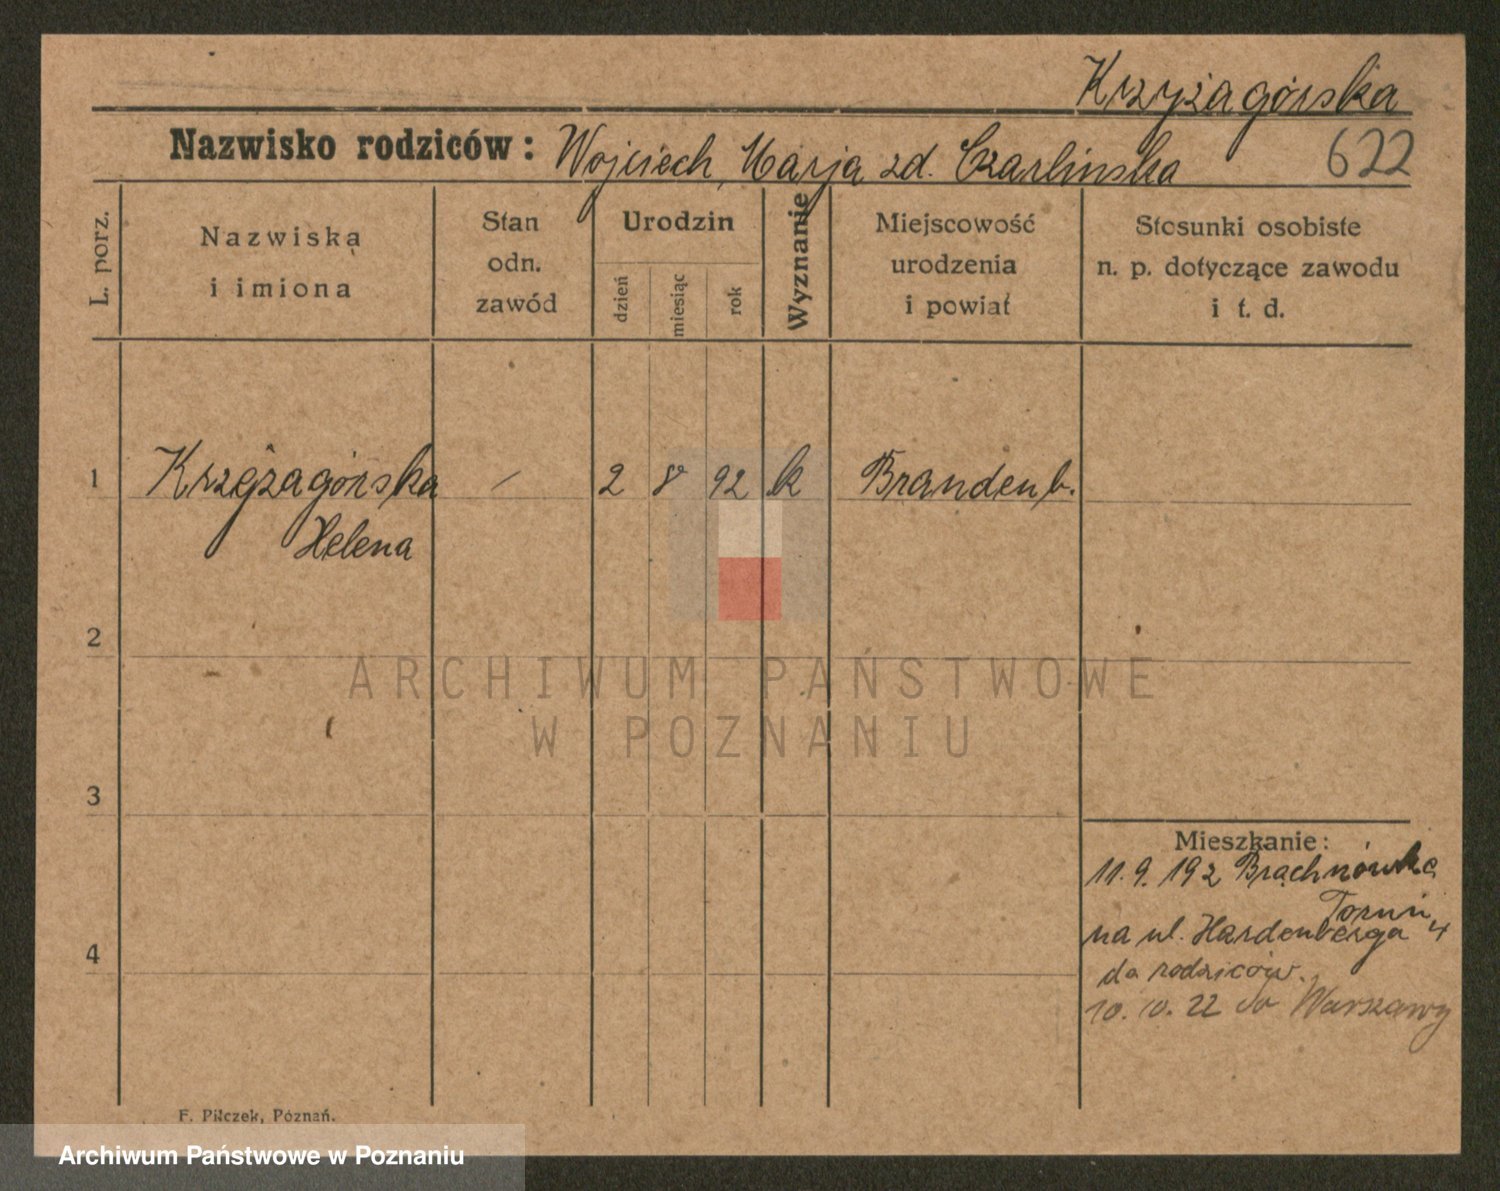 Krzyżagórska
Nazwisko rodziców: Wojciech, Marja zd. Czarlińska 622
L. porz.
Nazwiska
i imiona
Stan
odn.
zawód
Urodzin
dzień
miesiąc
rok
Wyznanie
Miejscowość
urodzenia
i powiat
Stosunki osobiste
n. p. dotyczące zawodu
i t. d.
1 Krzyżagórska / 2 8 92 k Brandenb.
Helena
2
3
4
Mieszkanie:
11. 9. 192 Brąchnówka
Toruń
na ul. Hardenberga 4
do rodziców.
10. 10. 22 do Warszawy
F. Pilczek, Poznań.
ARCHIWUM PAŃSTWOWE
W POZNANIU
Archiwum Państwowe w Poznaniu